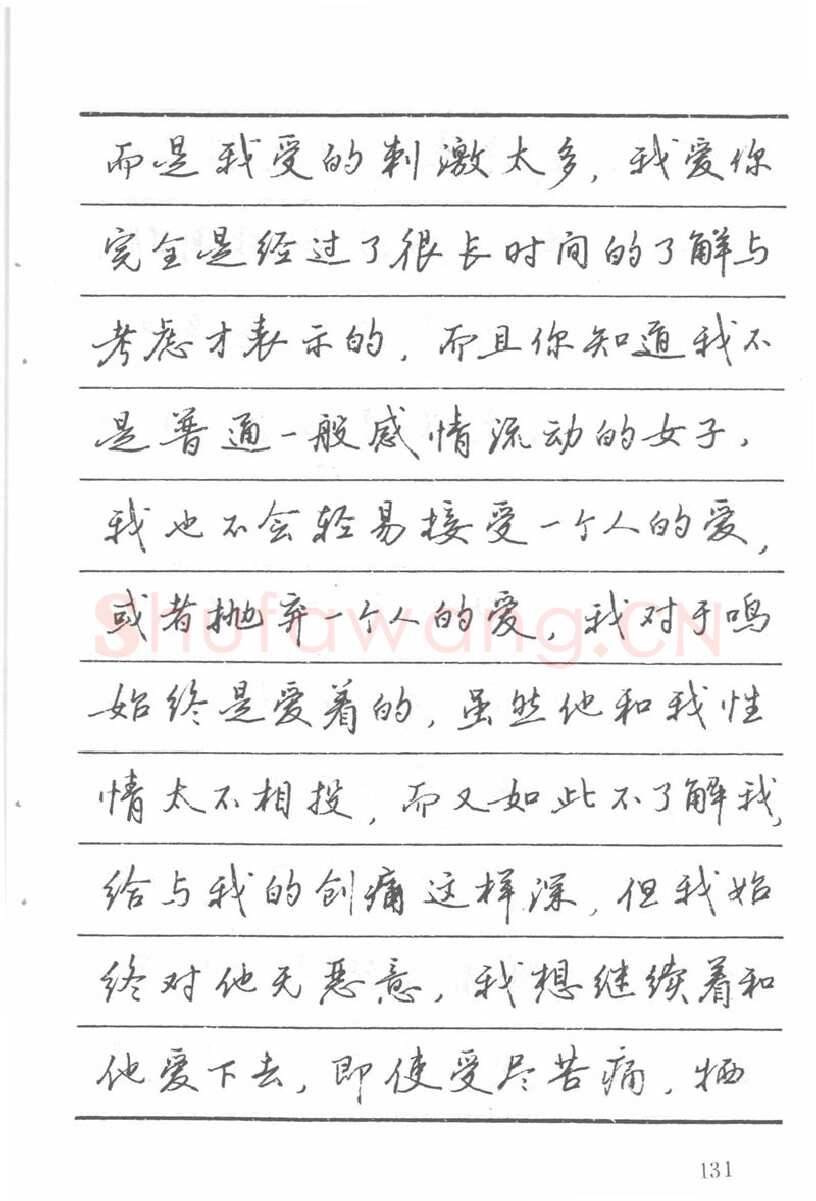 而是我受的刺激太多，我爱你
完全是经过了很长时间的了解与
考虑才表示的，而且你知道我不
是普通一般感情流动的女子，
我也不会轻易接受一个人的爱，
或者抛弃一个人的爱，我对于鸣
始终是爱着的，虽然他和我性
情太不相投，而又如此不了解我，
给与我的创痛这样深，但我始
终对他无恶意，我想继续着和
他爱下去，即使受尽苦痛，牺
Shufawang.CN
131